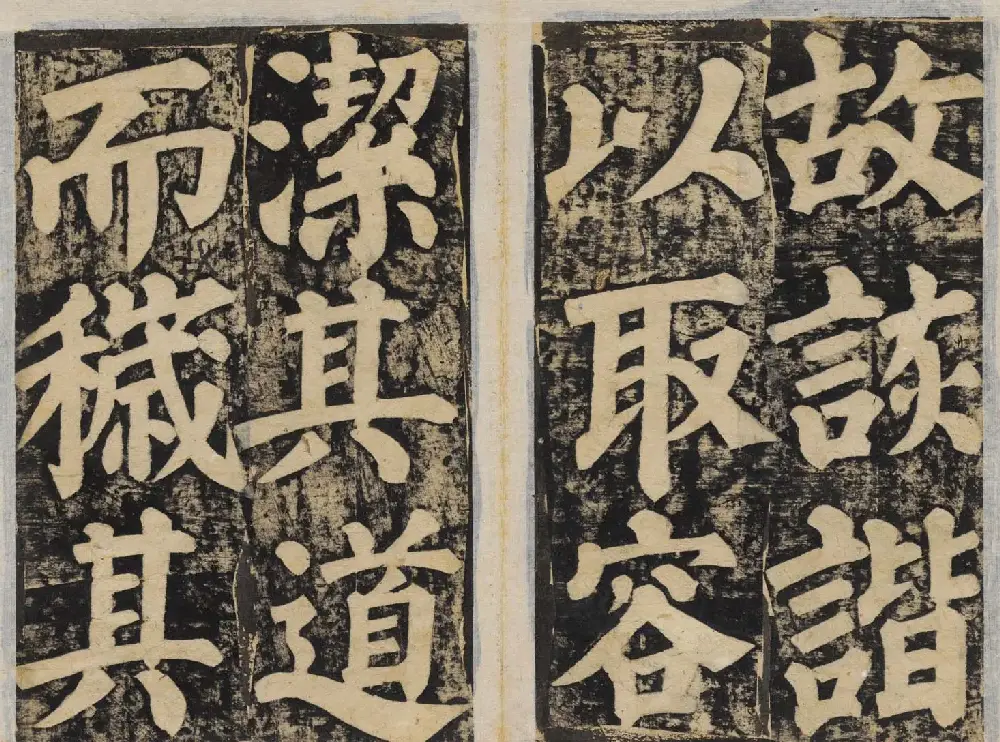 故談諧
以取容
潔其道
而穢其